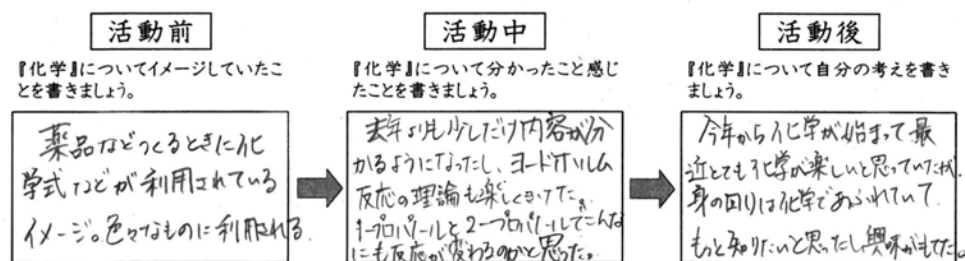 活動前
『化学』についてイメージしていたこ
とを書きましょう。
薬品などつくるときに化
学式などが利用されている
イメージ。色々なものに利用される
活動中
『化学』について分かったこと感じ
たことを書きましょう。
去年よりも少しだけ内容が分
かるようになったし、ヨードホルム
反応の理論も楽しくきけた。
1-プロパノールと2-プロパノールでこんな
にも反応が変わるのかと思った。
活動後
『化学』について自分の考えを書き
ましょう。
今年から化学が始まって最
近とても化学が楽しいと思っていたが、
身の回りは化学であふれていて
もっと知りたいと思ったし興味がもてた。